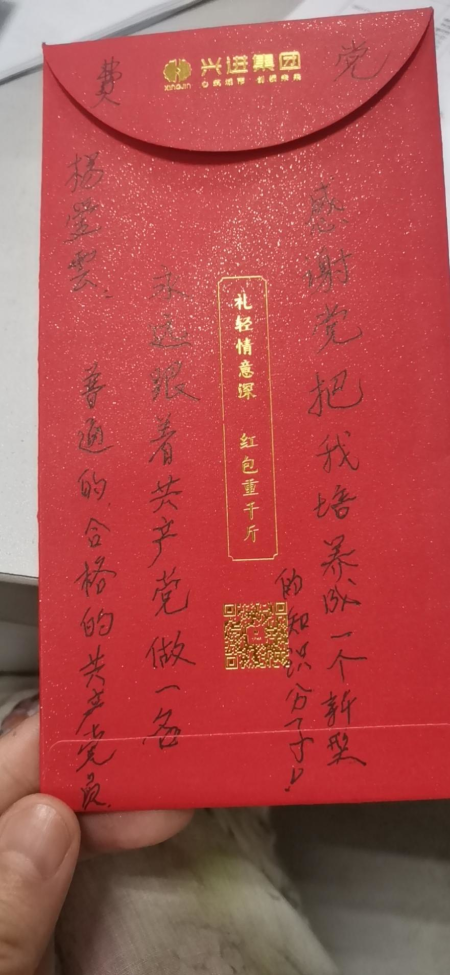 兴进集团
XINGJIN
党
费
感谢党把我培养成一个新型
的知识分子！
礼轻情意深 红包重千斤
永远跟着共产党做一名
普通的合格的共产党员
杨堂云